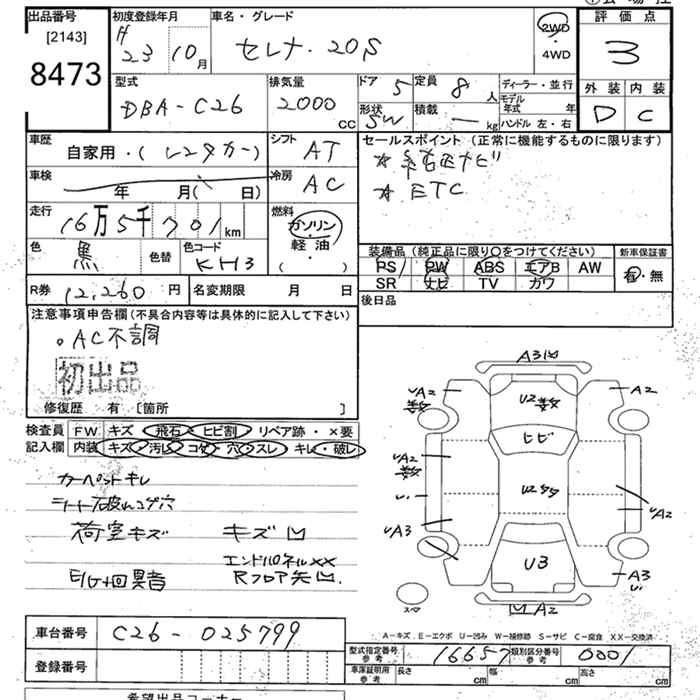 出品番号
[2143]
8473
初度登録年月
H 23 10月
車名・グレード
セレナ・20S
2WD
4WD
評価点
3
外装 内装
D C
型式
DBA-C26
排気量
2000 CC
ドア 5
形状 SW
定員 8人
積載 — kg
ディーラー・並行
モデル年式 年
ハンドル 左・右
車歴
自家用・(レンタカー)
シフト AT
車検 年 月( 日)
冷房 AC
走行 16万5千701km
燃料
ガソリン
軽油
( )
色 黒 色替
色コード KH3
セールスポイント(正常に機能するものに限ります)
☆ 純正ナビ
☆ ETC
装備品(純正品に限り〇をつけてください)
PS PW ABS エアB AW
SR ナビ TV カワ
新車保証書
有・無
R券 12,260円
名変期限 月 日
後日品
注意事項申告欄(不具合内容等は具体的に記入して下さい)
。AC不調
初出品
修復歴 有 [箇所 ]
検査員 FW キズ 飛石 ヒビ割 リペア跡・×要
記入欄 内装 キズ 汚レ コゲ 穴 スレ キレ・破レ
カーペットキレ
シート破れコゲ穴
荷室キズ キズ凹
エンドパネルXX
E/G+回異音 Rフロア矢凹.
A3凹
UA2
A2
U2
ヒビ
UA2
U2
UA3
UA2
U3
A3
凹A2
スペア
A-キズ. E-エクボ U-凹み W-補修跡 S-サビ C-腐食 XX-交換済
車台番号 C26-025799
登録番号
型式指定番号 参考 16657
類別区分番号 参考 0001
車庫証明用 参考 長さ cm 幅 cm 高さ cm
希望出品コーナー